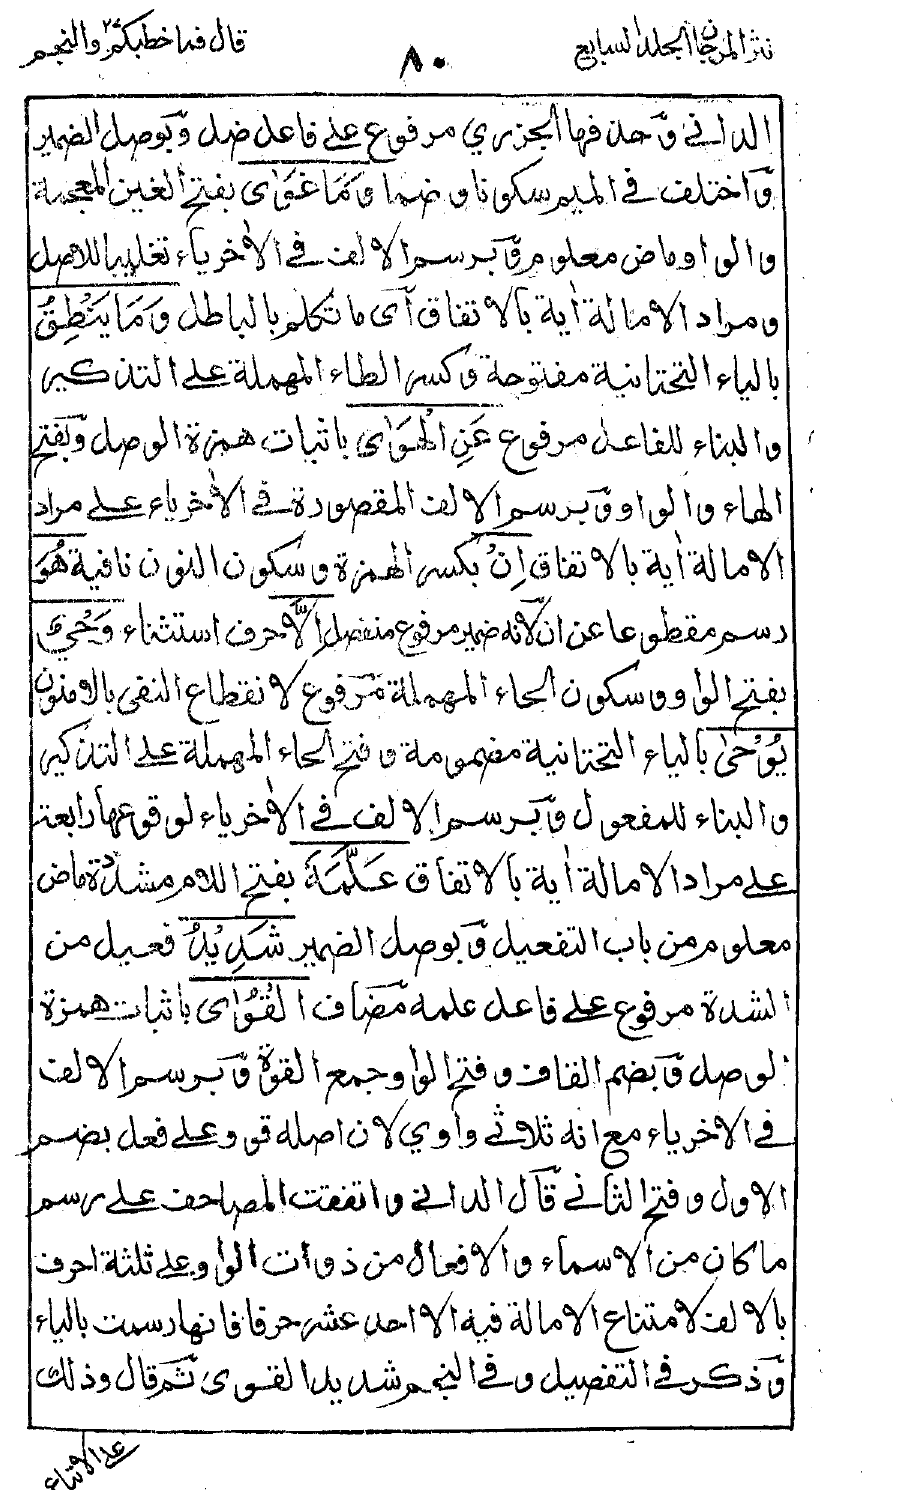 نثر المرجان الجلد السابع
٨٠
قال فما خطبكم ٢٧ والنجم
الداني وحذفها الجزري مرفوع على فاعل ضل وبوصل الضمير
واختلف في الميم سكونا وضما وَمَا غَوٰى بفتح الغين المعجمة
والواو ماض معلوم وبرسم الالف في الاخر ياء تغليبا للاصل
ومراد الامالة اٰية بالاتفاق اى ما تكلم بالباطل وَمَا يَنْطِقُ
بالياء التحتانية مفتوحة وكسر الطاء المهملة على التذكير
والبناء للفاعل مرفوع عَنِ الْهَوٰى باثبات همزة الوصل وبفتح
الهاء والواو وبرسم الالف المقصورة في الاخر ياء على مراد
الامالة اٰية بالاتفاق اِنْ بكسر الهمزة وسكون النون نافية هُوَ
رسم مقطوعا عن ان لانه ضمير مرفوع منفصل اِلَّا حرف استثناء وَحْيٌ
بفتح الواو وسكون الحاء المهملة مرفوع لانقطاع النفى بالا منون
يُوْحٰى بالياء التحتانية مضمومة وفتح الحاء المهملة على التذكير
والبناء للمفعول وبرسم الالف في الاخر ياء لوقوعها رابعة
على مراد الامالة اٰية بالاتفاق عَلَّمَهٗ بفتح اللام مشددة ماض
معلوم من باب التفعيل وبوصل الضمير شَدِيْدُ فعيل من
الشدة مرفوع على فاعل علمه مضاف الْقُوٰى باثبات همزة
الوصل وبضم القاف وفتح الواو جمع القوة وبرسم الالف
في الاخر ياء مع انه ثلاثي واوي لان اصله قوو على فعل بضم
الاول وفتح الثاني قال الداني واتفقت المصاحف على رسم
ما كان من الاسماء والافعال من ذوات الواو على ثلثة احرف
بالالف لامتناع الامالة فيه الا احد عشر حرفا فانها رسمت بالياء
وذكر في التفصيل وفي النجم شديد القوى ثم قال وذلك
على الاتباع